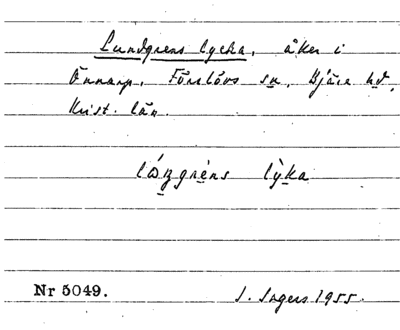 Lundgrens lycka, åker i
Önnarp, Förslövs sn, Bjäre hd,
Krist. län.
lyka
Nr 5049.
S. Ingers 1955.